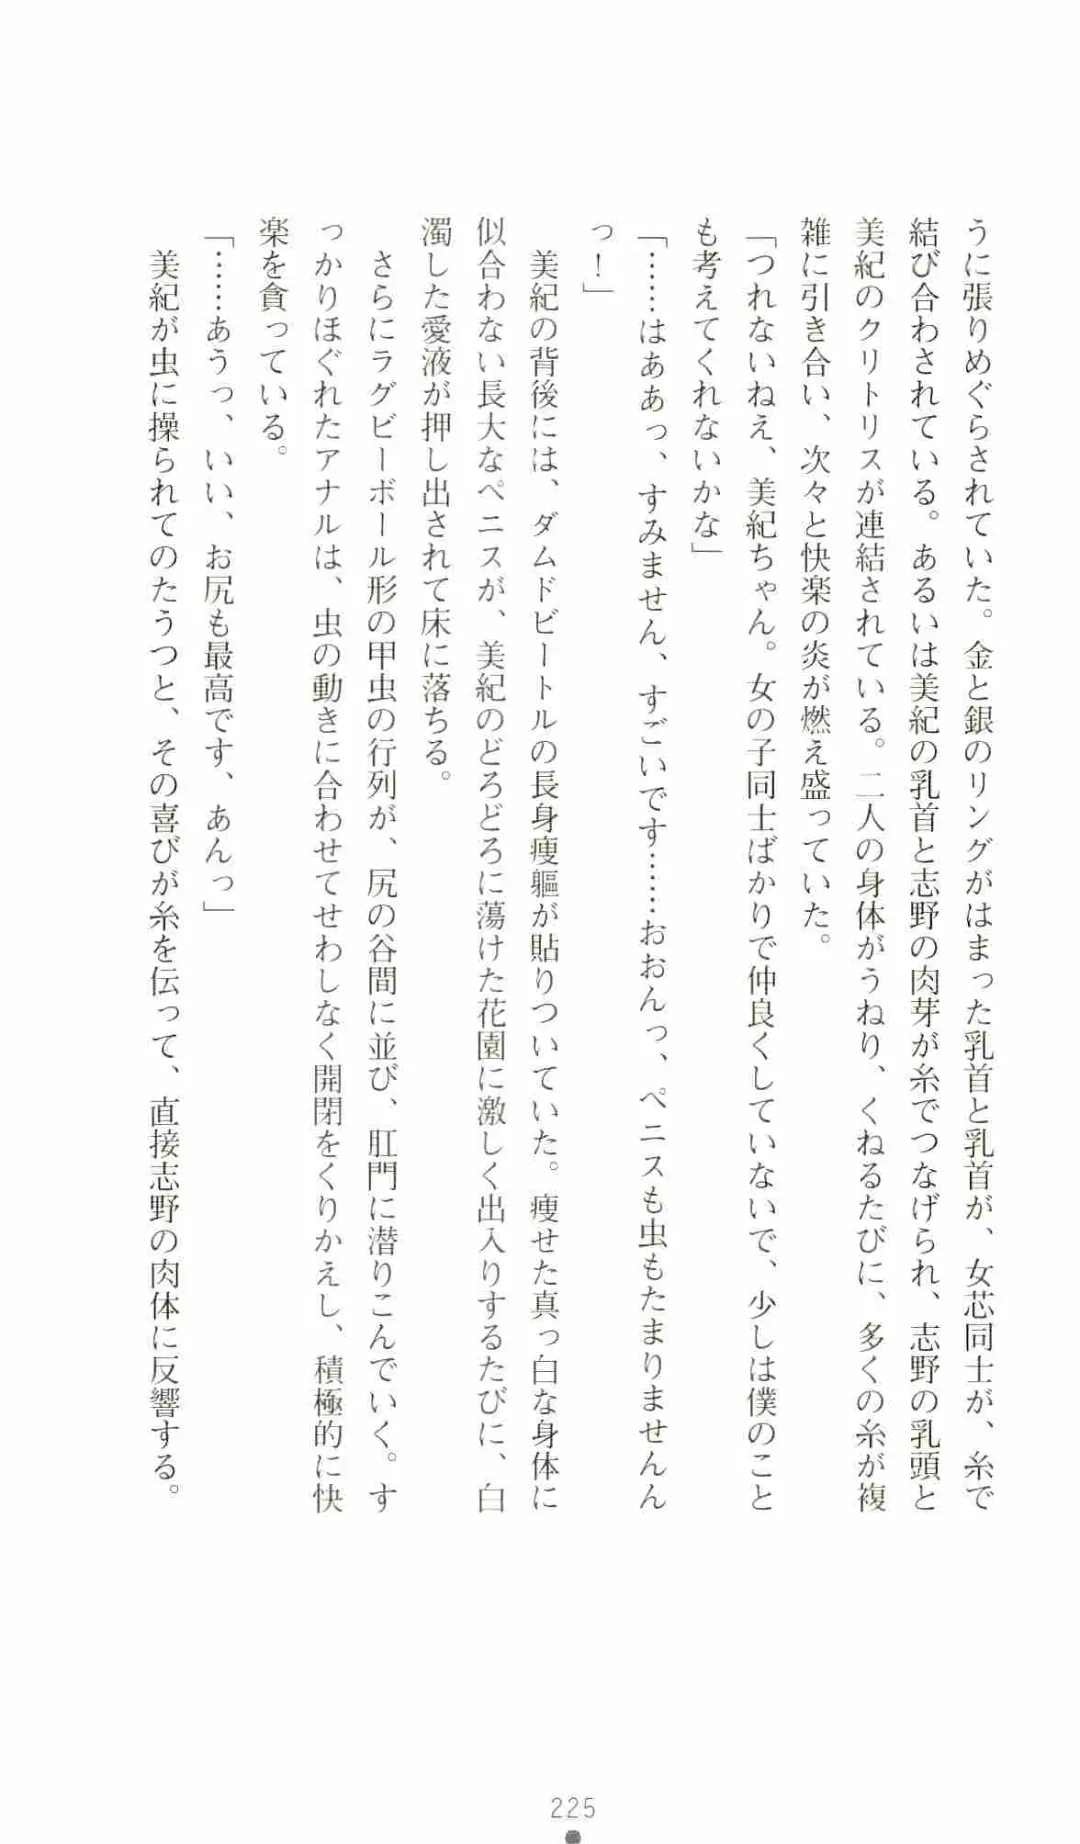 うに張りめぐらされていた。金と銀のリングがはまった乳首と乳首が、女芯同士が、糸で
結び合わされている。あるいは美紀の乳首と志野の肉芽が糸でつなげられ、志野の乳頭と
美紀のクリトリスが連結されている。二人の身体がうねり、くねるたびに、多くの糸が複
雑に引き合い、次々と快楽の炎が燃え盛っていた。
「つれないねえ、美紀ちゃん。女の子同士ばかりで仲良くしていないで、少しは僕のこと
も考えてくれないかな」
「……はああっ、すみません、すごいです……おおんっ、ペニスも虫もたまりませんん
っ！」
美紀の背後には、ダムドビートルの長身痩軀が貼りついていた。痩せた真っ白な身体に
似合わない長大なペニスが、美紀のどろどろに蕩けた花園に激しく出入りするたびに、白
濁した愛液が押し出されて床に落ちる。
さらにラグビーボール形の甲虫の行列が、尻の谷間に並び、肛門に潜りこんでいく。す
っかりほぐれたアナルは、虫の動きに合わせてせわしなく開閉をくりかえし、積極的に快
楽を貪っている。
「……あうっ、いい、お尻も最高です、あんっ」
美紀が虫に操られてのたうつと、その喜びが糸を伝って、直接志野の肉体に反響する。
225